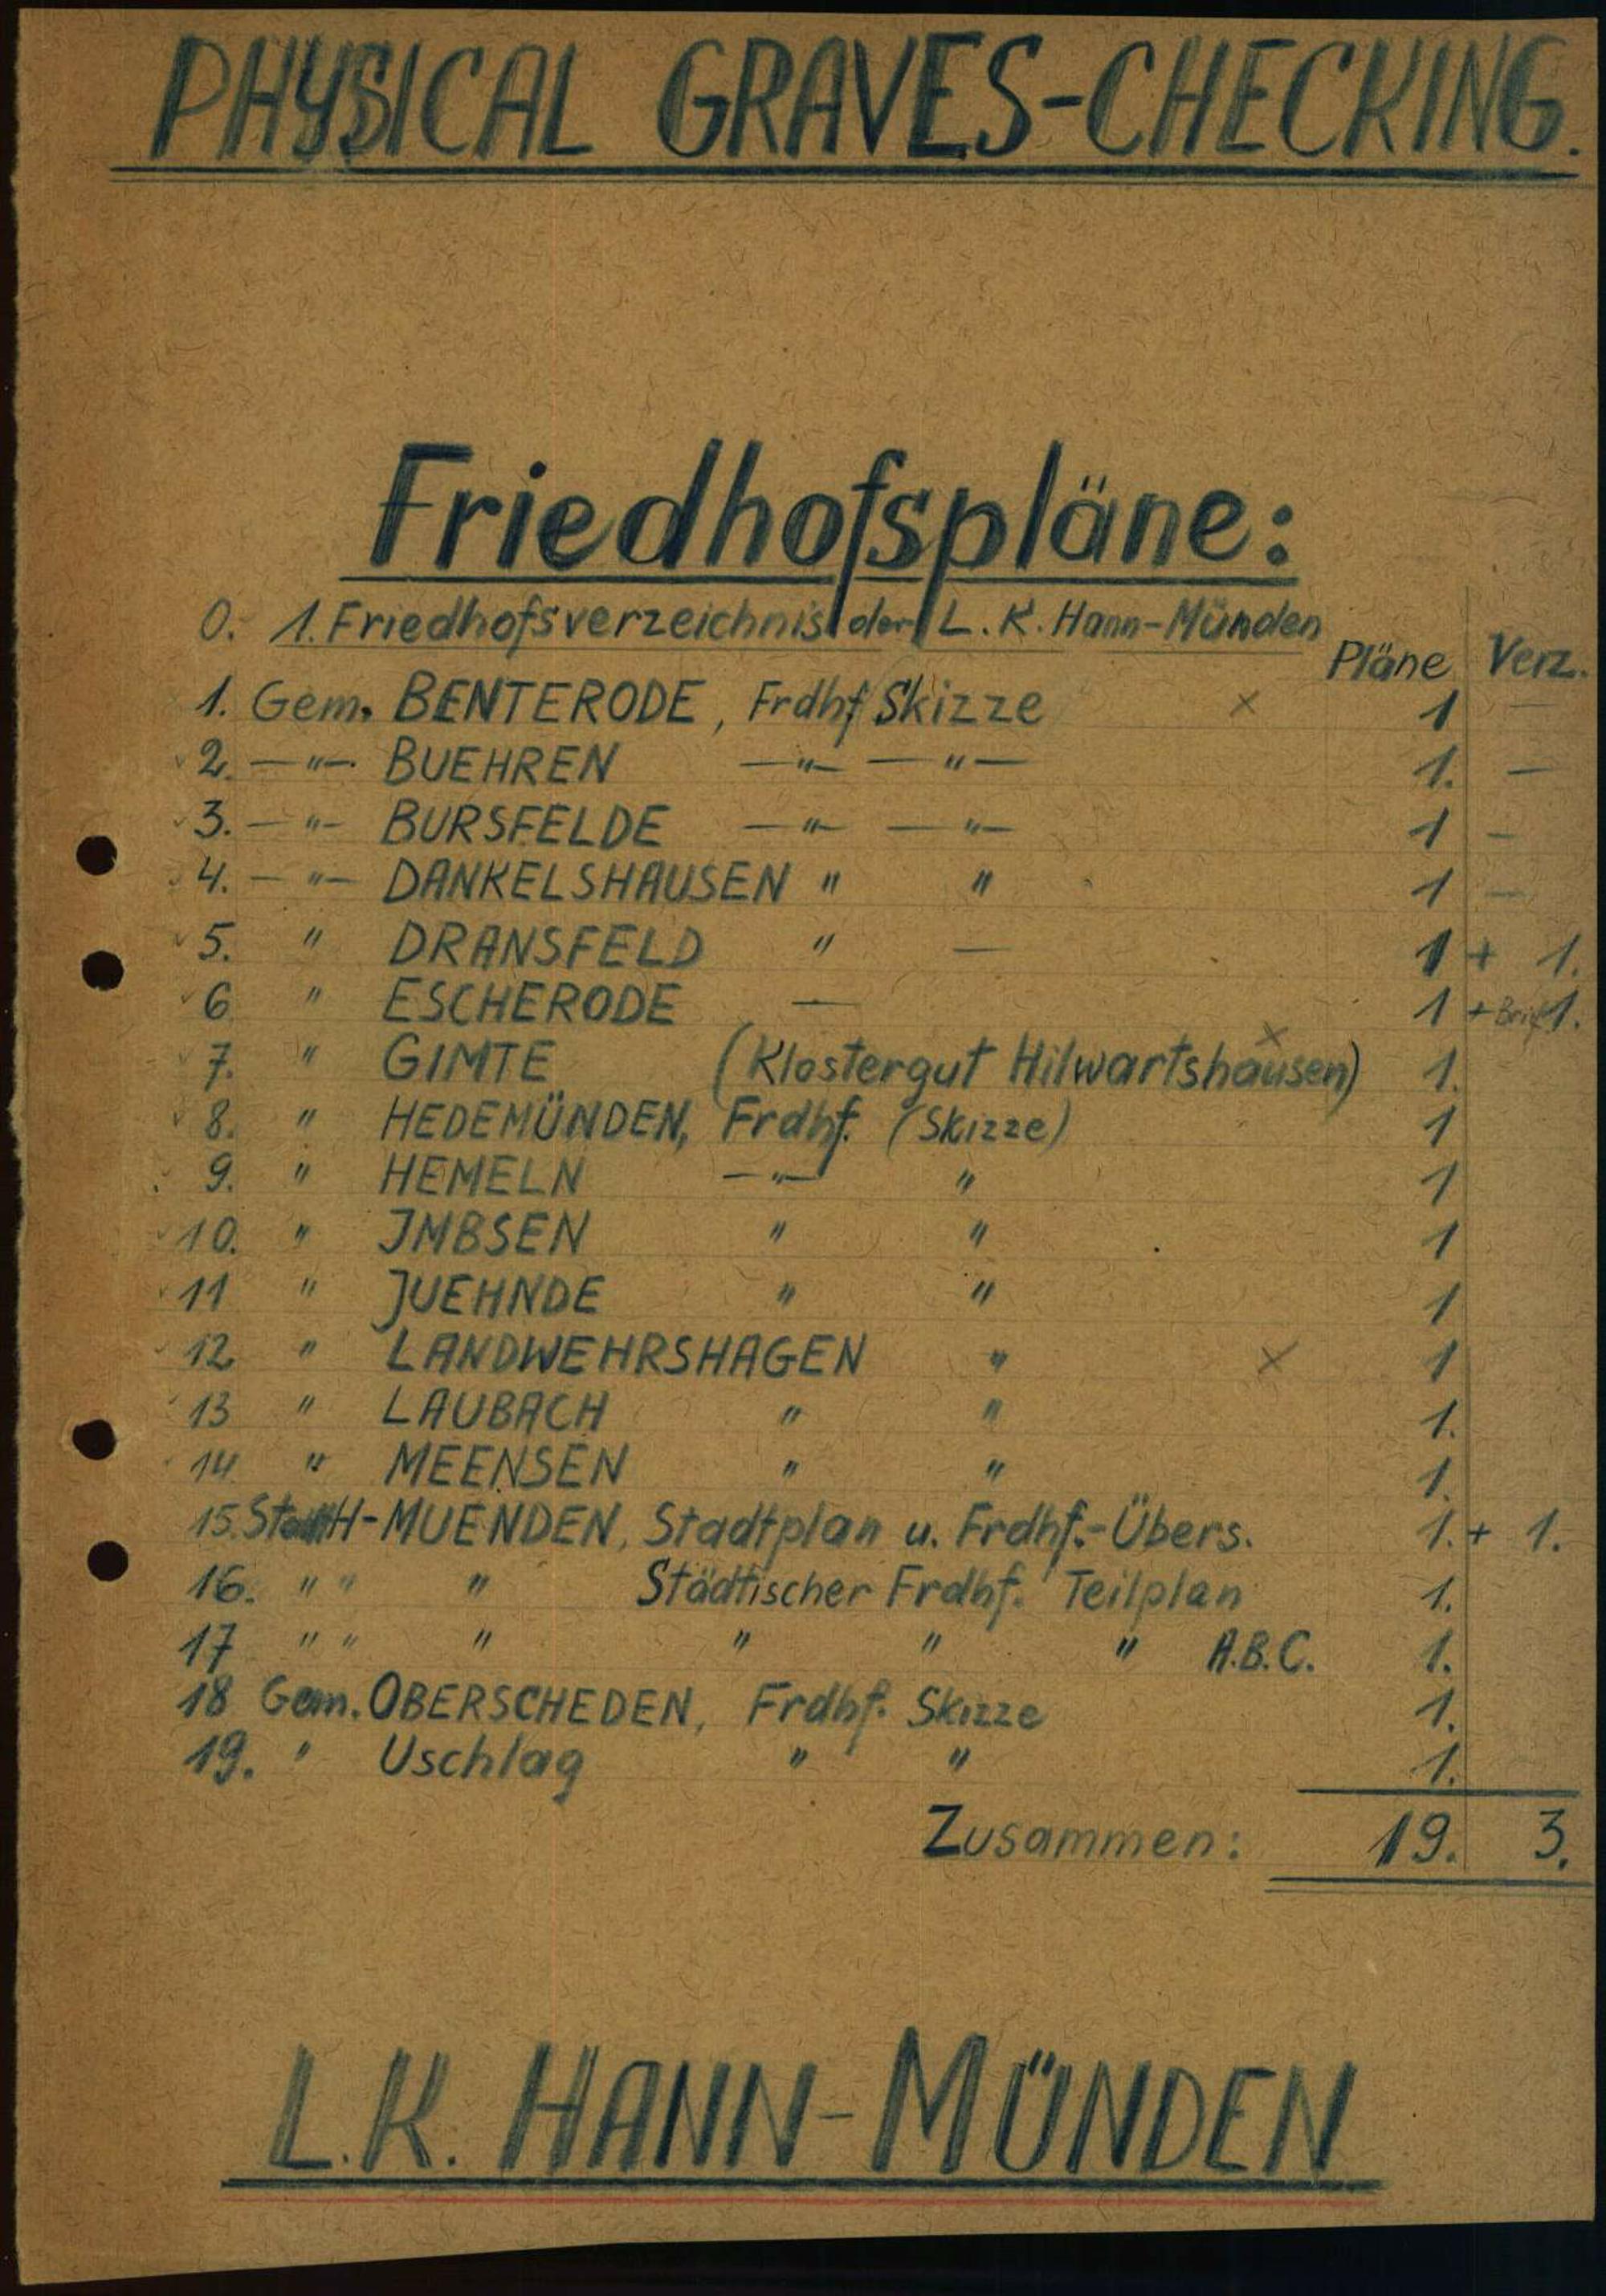 PHYSICAL GRAVES-CHECKING.
Friedhofspläne:
0. 1. Friedhofsverzeichnis der L.K. Hann-Münden
Pläne Verz.
1. Gem. BENTERODE, Frdhf Skizze x 1 —
2. —"— BUEHREN —"— —"— 1. —
3. —"— BURSFELDE —"— —"— 1 —
4. —"— DANKELSHAUSEN " " 1 —
5. " DRANSFELD " — 1 + 1.
6 " ESCHERODE — 1 + Brief 1.
7. " GIMTE (Klostergut Hilwartshausen) x 1.
8. " HEDEMÜNDEN, Frdhf. (Skizze) 1
9. " HEMELN —"— " 1
10. " JMBSEN " " 1
11 " JUEHNDE " " 1
12 " LANDWEHRSHAGEN " x 1
13 " LAUBACH " " 1.
14 " MEENSEN " " 1.
15. H-MUENDEN, Stadtplan u. Frdhf.-Übers. 1. + 1.
16. " " " Städtischer Frdhf. Teilplan 1.
17 " " " " " " A.B.C. 1.
18 Gem. OBERSCHEDEN, Frdhf. Skizze 1.
19. " Uschlag " " 1.
Zusammen: 19. 3.
L.K. HANN-MÜNDEN